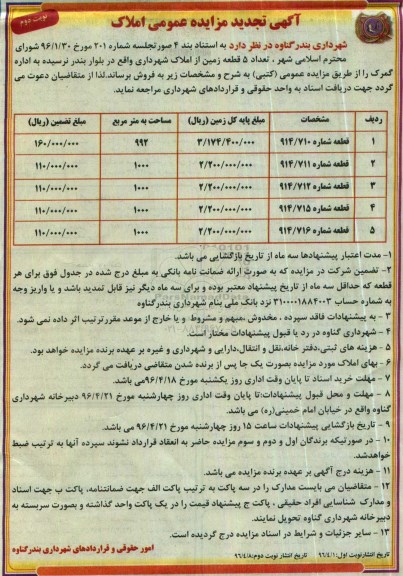 نوبت دوم
آگهی تجدید مزایده عمومی املاک
شهرداری بندرگناوه در نظر دارد به استناد بند ۴ صورتجلسه شماره ۲۰۱ مورخ ۹۶/۱/۳۰ شورای
محترم اسلامی شهر ، تعداد ۵ قطعه زمین از املاک شهرداری واقع در بلوار بندر نرسیده به اداره
گمرک را از طریق مزایده عمومی (کتبی) به شرح و مشخصات زیر به فروش برساند.لذا از متقاضیان دعوت می
گردد جهت دریافت اسناد به واحد حقوقی و قراردادهای شهرداری مراجعه نماید.
ردیف مشخصات مبلغ پایه کل زمین (ریال) مساحت به متر مربع مبلغ تضمین (ریال)
۱ قطعه شماره ۹۱۴/۷۱۰ ۳/۱۷۴/۴۰۰/۰۰۰ ۹۹۲ ۱۶۰/۰۰۰/۰۰۰
۲ قطعه شماره ۹۱۴/۷۱۱ ۲/۲۰۰/۰۰۰/۰۰۰ ۱۰۰۰ ۱۱۰/۰۰۰/۰۰۰
۳ قطعه شماره ۹۱۴/۷۱۲ ۲/۲۰۰/۰۰۰/۰۰۰ ۱۰۰۰ ۱۱۰/۰۰۰/۰۰۰
۴ قطعه شماره ۹۱۴/۷۱۵ ۲/۲۰۰/۰۰۰/۰۰۰ ۱۰۰۰ ۱۱۰/۰۰۰/۰۰۰
۵ قطعه شماره ۹۱۴/۷۱۶ ۲/۲۰۰/۰۰۰/۰۰۰ ۱۰۰۰ ۱۱۰/۰۰۰/۰۰۰
۱- مدت اعتبار پیشنهادها سه ماه از تاریخ بازگشایی می باشد.
۲- تضمین شرکت در مزایده که به صورت ارائه ضمانت نامه بانکی به مبلغ درج شده در جدول فوق برای هر
قطعه که حداقل سه ماه از تاریخ پیشنهاد معتبر بوده و برای سه ماه دیگر نیز قابل تمدید باشد و یا واریز وجه
به شماره حساب ۳۱۰۰۰۰۱۸۸۴۰۰۳ نزد بانک ملی بنام شهرداری بندرگناوه
۳ - به پیشنهادات فاقد سپرده ، مخدوش ،مبهم و مشروط و یا خارج از موعد مقررترتیب اثر داده نمی شود.
۴ - شهرداری گناوه در رد یا قبول پیشنهادات مختار است.
۵ - هزینه های ثبتی،دفتر خانه،نقل و انتقال،دارایی و شهرداری و غیره بر عهده برنده مزایده خواهد بود.
۶ - بهای املاک مورد مزایده بصورت یک جا پس از برنده شدن متقاضی دریافت می گردد.
۷ - مهلت خرید اسناد تا پایان وقت اداری روز یکشنبه مورخ ۹۶/۴/۱۸می باشد.
۸ - مهلت و محل قبول پیشنهادات:تا پایان وقت اداری روز چهارشنبه مورخ ۹۶/۴/۲۱ دبیرخانه شهرداری
گناوه واقع در خیابان امام خمینی(ره) می باشد.
۹ - تاریخ بازگشایی پیشنهادات ساعت ۱۵ روز چهارشنبه مورخ ۹۶/۴/۲۱ می باشد.
۱۰ - در صورتیکه برندگان اول و دوم و سوم مزایده حاضر به انعقاد قرارداد نشوند سپرده آنها به ترتیب ضبط
خواهدشد.
۱۱ - هزینه درج آگهی بر عهده برنده مزایده می باشد.
۱۲ - متقاضیان می بایست مدارک را در سه پاکت به ترتیب پاکت الف جهت ضمانتنامه، پاکت ب جهت اسناد
و مدارک شناسایی افراد حقیقی ، پاکت ج پیشنهاد قیمت را در یک پاکت واحد گذاشته و بصورت سربسته به
دبیرخانه شهرداری گناوه تحویل نمایند.
۱۳ - سایر جزئیات و شرایط در اسناد مزایده درج گردیده است.
امور حقوقی و قراردادهای شهرداری بندرگناوه
تاریخ انتشارنوبت اول:۹۶/۴/۱ تاریخ انتشار نوبت دوم:۹۶/۴/۸